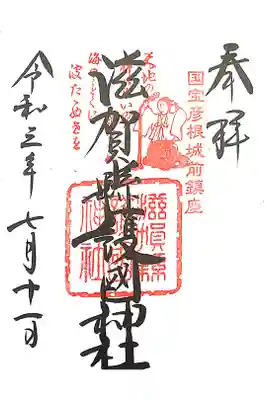 奉拝
国宝彦根城前鎮座
滋賀縣護國神社
滋賀縣
神社
天地の
令和三年七月十一日